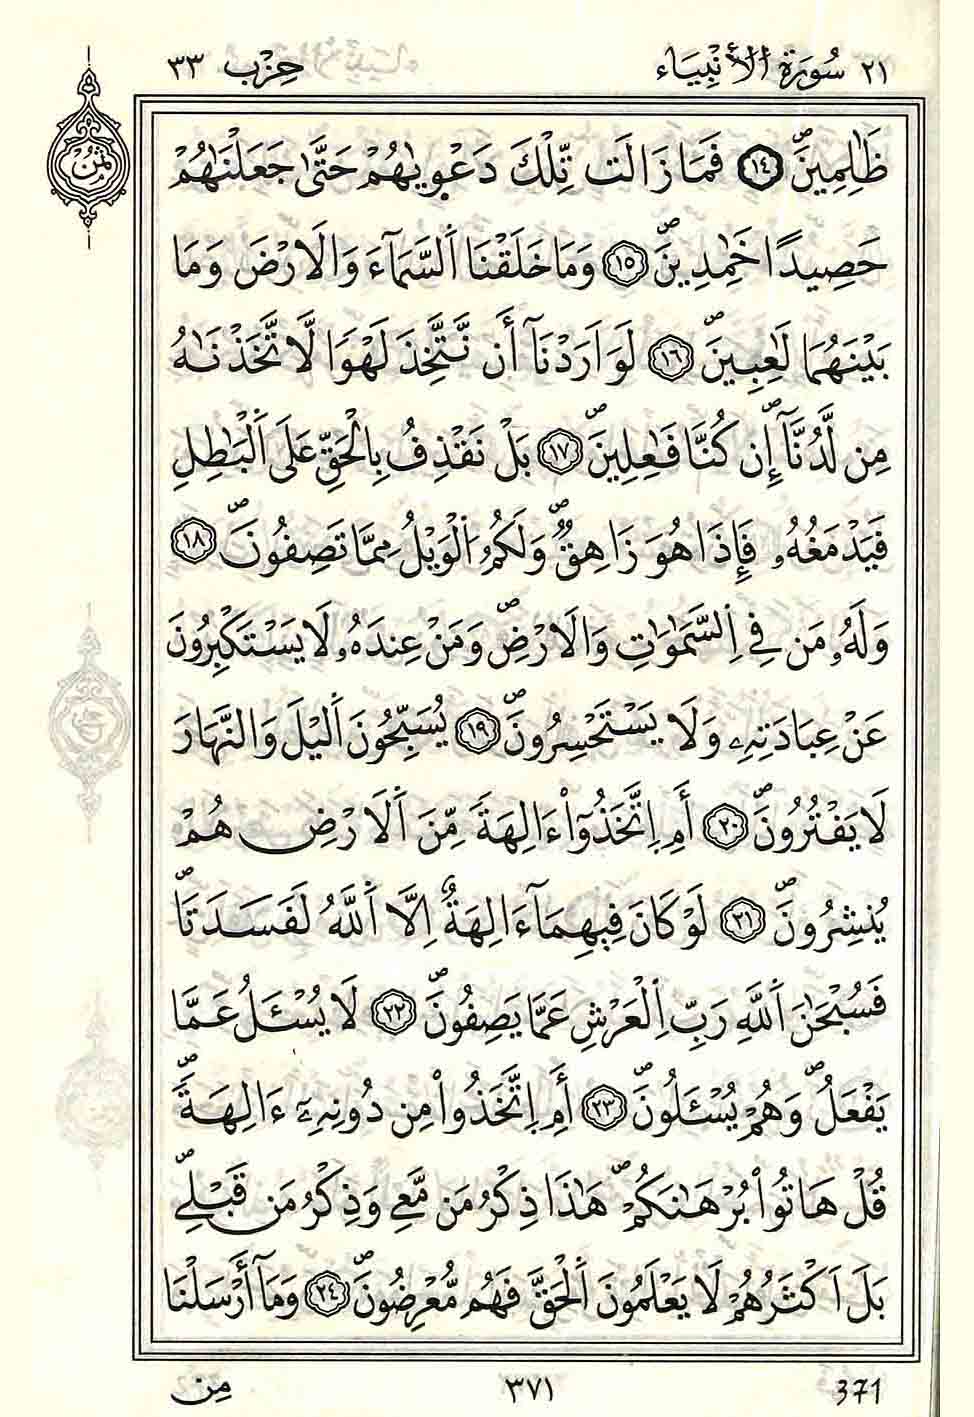 ٢١ سُورَةُ الْأَنْبِيَاء حِزْب ٣٣
ثُمُن
ظَٰلِمِينَۖ ١٤ فَمَا زَالَت تِّلْكَ دَعْو۪يٰهُمْ حَتَّىٰ جَعَلْنَٰهُمْ
حَصِيدًا خَٰمِدِينَۖ ١٥ وَمَا خَلَقْنَا اَ۬لسَّمَآءَ وَالَارْضَ وَمَا
بَيْنَهُمَا لَٰعِبِينَۖ ١٦ لَوَ اَرَدْنَآ أَن نَّتَّخِذَ لَهْوًا لَّاتَّخَذْنَٰهُ
مِن لَّدُنَّآۖ إِن كُنَّا فَٰعِلِينَۖ ١٧ بَلْ نَقْذِفُ بِالْحَقِّ عَلَى اَ۬لْبَٰطِلِ
فَيَدْمَغُهُۥ فَإِذَا هُوَ زَاهِقٌۖ وَلَكُمُ اُ۬لْوَيْلُ مِمَّا تَصِفُونَۖ ١٨
وَلَهُۥ مَن فِے اِ۬لسَّمَٰوَٰتِ وَالَارْضِۖ وَمَنْ عِندَهُۥ لَا يَسْتَكْبِرُونَ
عَنْ عِبَادَتِهِۦ وَلَا يَسْتَحْسِرُونَۖ ١٩ يُسَبِّحُونَ اَ۬ليْلَ وَالنَّهَارَ
لَا يَفْتُرُونَۖ ٢٠ أَمِ اِ۪تَّخَذُوٓاْ ءَالِهَةً مِّنَ اَ۬لَارْضِ هُمْ
يُنشِرُونَۖ ٢١ لَوْ كَانَ فِيهِمَآ ءَالِهَةٌ اِلَّا اَ۬للَّهُ لَفَسَدَتَاۖ
فَسُبْحَٰنَ اَ۬للَّهِ رَبِّ اِ۬لْعَرْشِ عَمَّا يَصِفُونَۖ ٢٢ لَا يُسْـَٔلُ عَمَّا
يَفْعَلُۖ وَهُمْ يُسْـَٔلُونَۖ ٢٣ أَمِ اِ۪تَّخَذُواْ مِن دُونِهِۦٓ ءَالِهَةًۖ
قُلْ هَاتُواْ بُرْهَٰنَكُمْۖ هَٰذَا ذِكْرُ مَن مَّعِے وَذِكْرُ مَن قَبْلِےۖ
بَلَ اَكْثَرُهُمْ لَا يَعْلَمُونَ اَ۬لْحَقَّ فَهُم مُّعْرِضُونَۖ ٢٤ وَمَآ أَرْسَلْنَا
371 ٣٧١ مِن